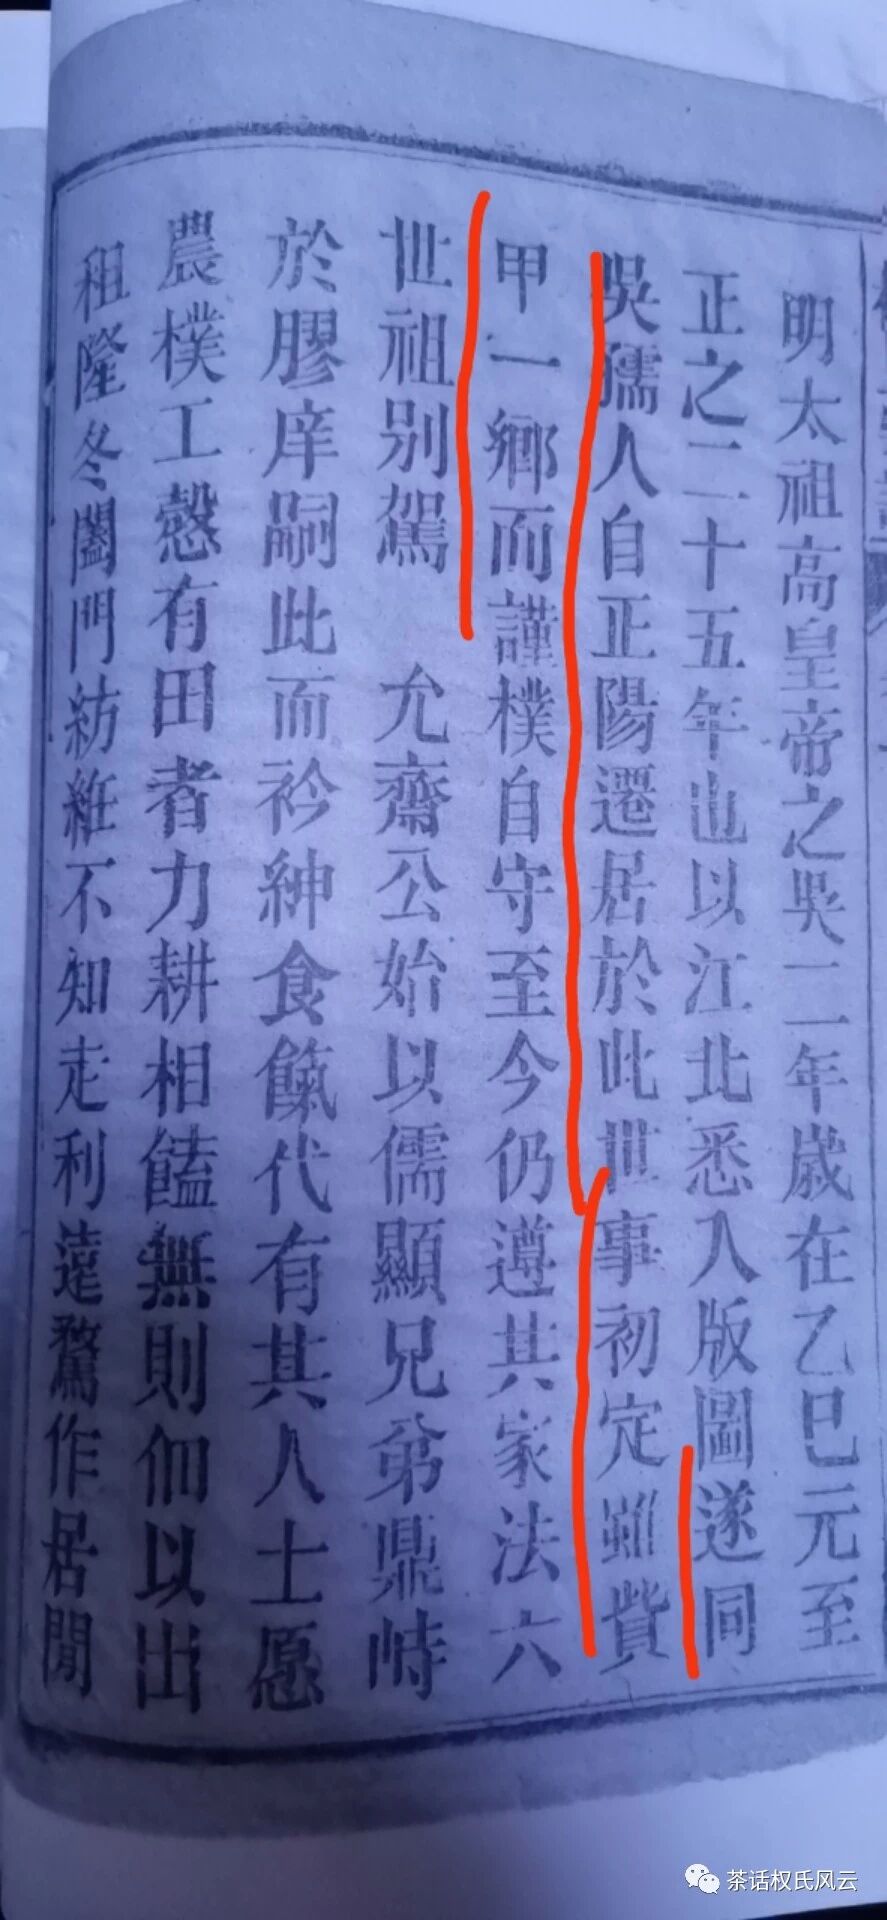 明太祖高皇帝之吳二年歲在乙巳元至
正之二十五年也以江北悉入版圖遂同
吳孺人自正陽遷居於此世事初定雖貲
甲一鄉而謹樸自守至今仍遵其家法六
世祖别駕　允齋公始以儒顯兄弟鼎峙
於膠庠嗣此而衿紳食餼代有其人士愿
農樸工慤有田者力耕相饁無則佃以出
租隆冬闔門紡維不知走利遠騖作居閒
茶话权氏风云